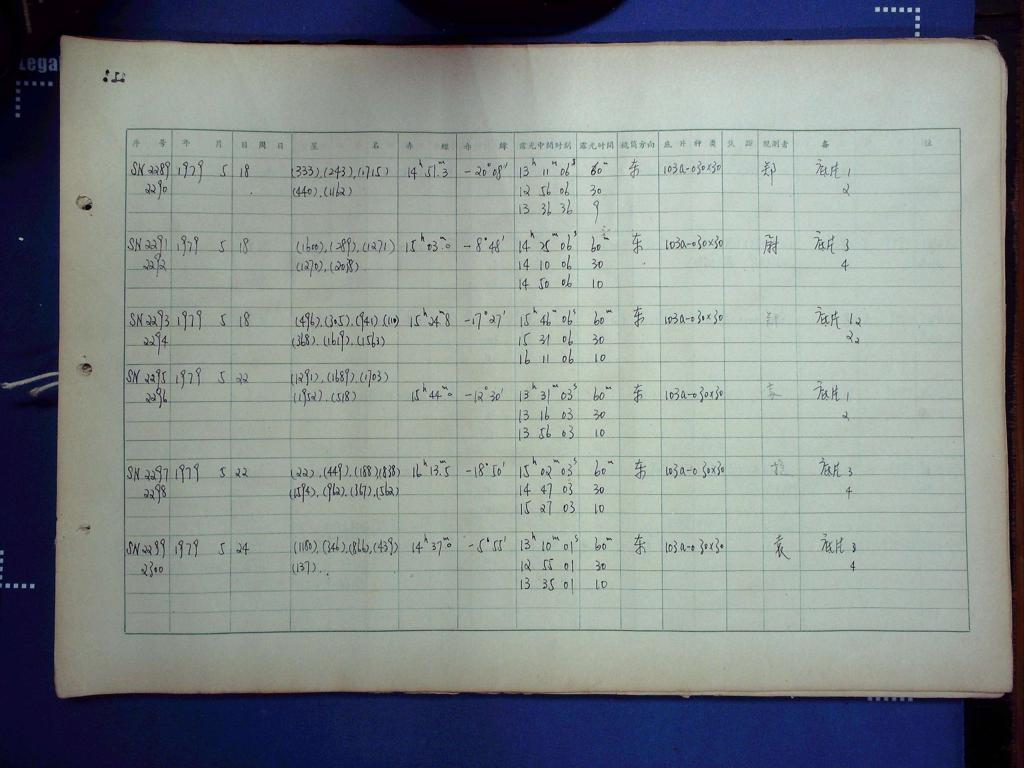 Lega
序 号 年 月 日 周 日 星 名 赤 經 赤 緯 露光中間时刻 露光时间 鏡筒方向 底 片 种 类 焦 距 观測者 备 註
SN 2289 1979 5 18 (333),(243),(1715) 14h 51m.3 -20°08′ 13h 11m 06s 60m 东 103a-0 30×30 郑 底片 1
2290 (440),(1162) 12 56 06 30 2
13 36 36 9
SN 2291 1979 5 18 (1600),(289),(1271) 15h 03m.0 -8°48′ 14h 25m 06s 60m 东 103a-0 30×30 尉 底片 3
2292 (1270),(2038) 14 10 06 30 4
14 50 06 10
SN 2293 1979 5 18 (496),(305),(941) (110) 15h 24m.8 -17°27′ 15h 46m 06s 60m 东 103a-0 30×30 底片 12
2294 (368),(1619),(1563) 15 31 06 30 22
16 11 06 10
SN 2295 1979 5 22 (1291),(1689),(1703)
2296 (1952),(518) 15h 44m.0 -12°30′ 13h 31m 03s 60m 东 103a-0 30×30 袁 底片 1
13 16 03 30 2
13 56 03 10
SN 2297 1979 5 22 (22),(449),(188),(838) 16h 13m.5 -18°50′ 15h 02m 03s 60m 东 103a-0 30×30 底片 3
2298 (1594),(962),(367),(562) 14 47 03 30 4
15 27 03 10
SN 2299 1979 5 24 (1180),(346),(866),(439) 14h 37m.0 -5°55′ 13h 10m 01s 60m 东 103a-0 30×30 袁 底片 3
2300 (137) 12 55 01 30 4
13 35 01 10